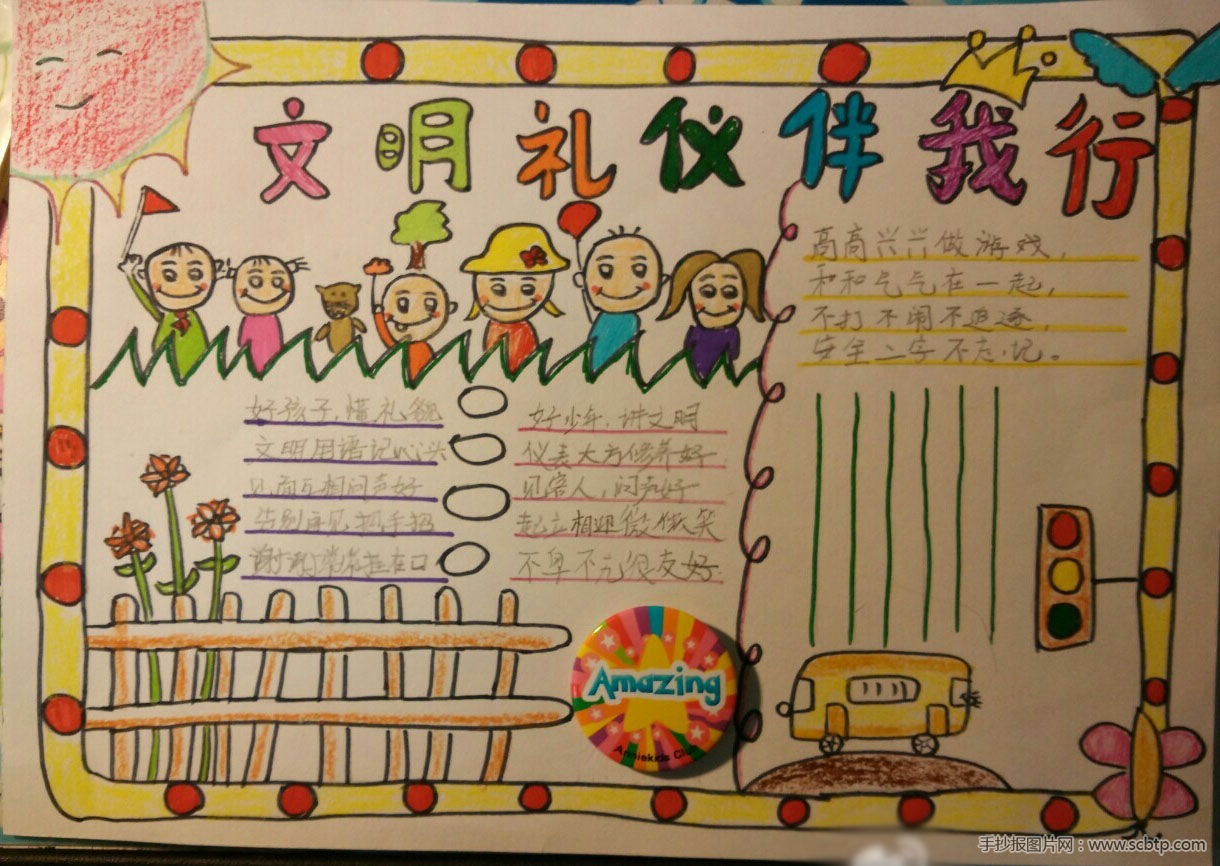 文明礼仪伴我行
高高兴兴做游戏，
和和气气在一起，
不打不闹不追逐，
安全二字不忘记。
好孩子，懂礼貌
文明用语记心头
见面互相问声好
告别再见招手招
谢谢常常挂在口
好少年，讲文明
仪表大方修养好
见客人，问声好
起立相迎微微笑
不卑不亢很友好
Amazing
Anniekids Club
手抄报图片网：www.scbtp.com